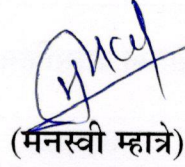 (मनस्वी म्हात्रे)